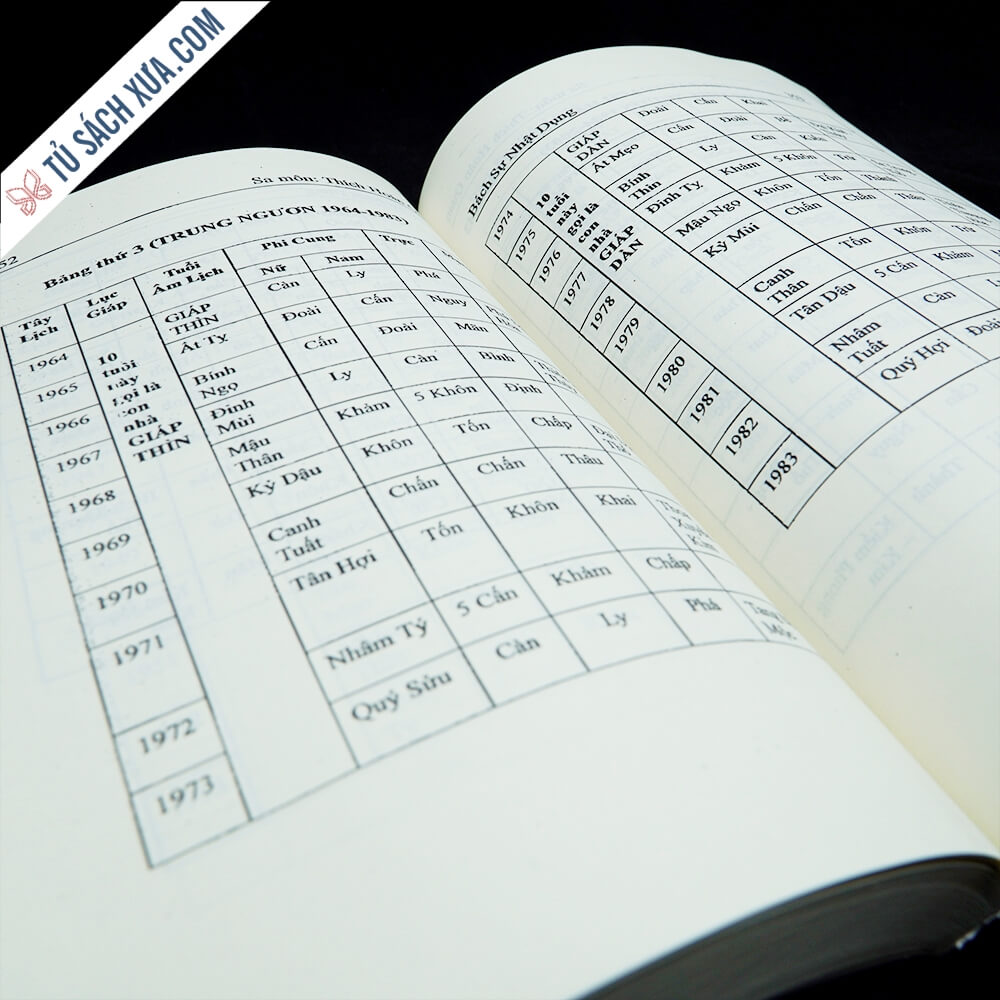 TỦ SÁCH XƯA.COM
52
Sa môn: Thích
Bảng thứ 3 (TRUNG NGƯƠN 1964-1983)
Tây Lịch
Lục Giáp
Tuổi Âm Lịch
Phi Cung
Trực
Nữ Nam
10
tuổi
này
gọi là
con
nhà
GIÁP
THÌN
1964 GIÁP THÌN Càn Ly Phá
1965 Ất Tỵ Đoài Cấn Nguy
1966 Bính Ngọ Cấn Đoài Mãn
1967 Đinh Mùi Ly Càn Bình
1968 Mậu Thân Khảm 5 Khôn Định
1969 Kỷ Dậu Khôn Tốn Chấp
1970 Canh Tuất Chấn Chấn Thâu
1971 Tân Hợi Tốn Khôn Khai
1972 Nhâm Tý 5 Cấn Khảm Chấp
1973 Quý Sửu Càn Ly Phá
Bách Sự Nhật Dụng
10
tuổi
này
gọi là
con
nhà
GIÁP
DẦN
1974 GIÁP DẦN Đoài Cấn Khai
1975 Ất Mẹo Cấn Đoài Bế
1976 Bính Thìn Ly Càn
1977 Đinh Tỵ Khảm 5 Khôn Trừ
1978 Mậu Ngọ Khôn Tốn Thành
1979 Kỷ Mùi Chấn Chấn
1980 Canh Thân Tốn Khôn Trừ
1981 Tân Dậu 5 Cấn Khảm
1982 Nhâm Tuất Càn Ly
1983 Quý Hợi Đoài